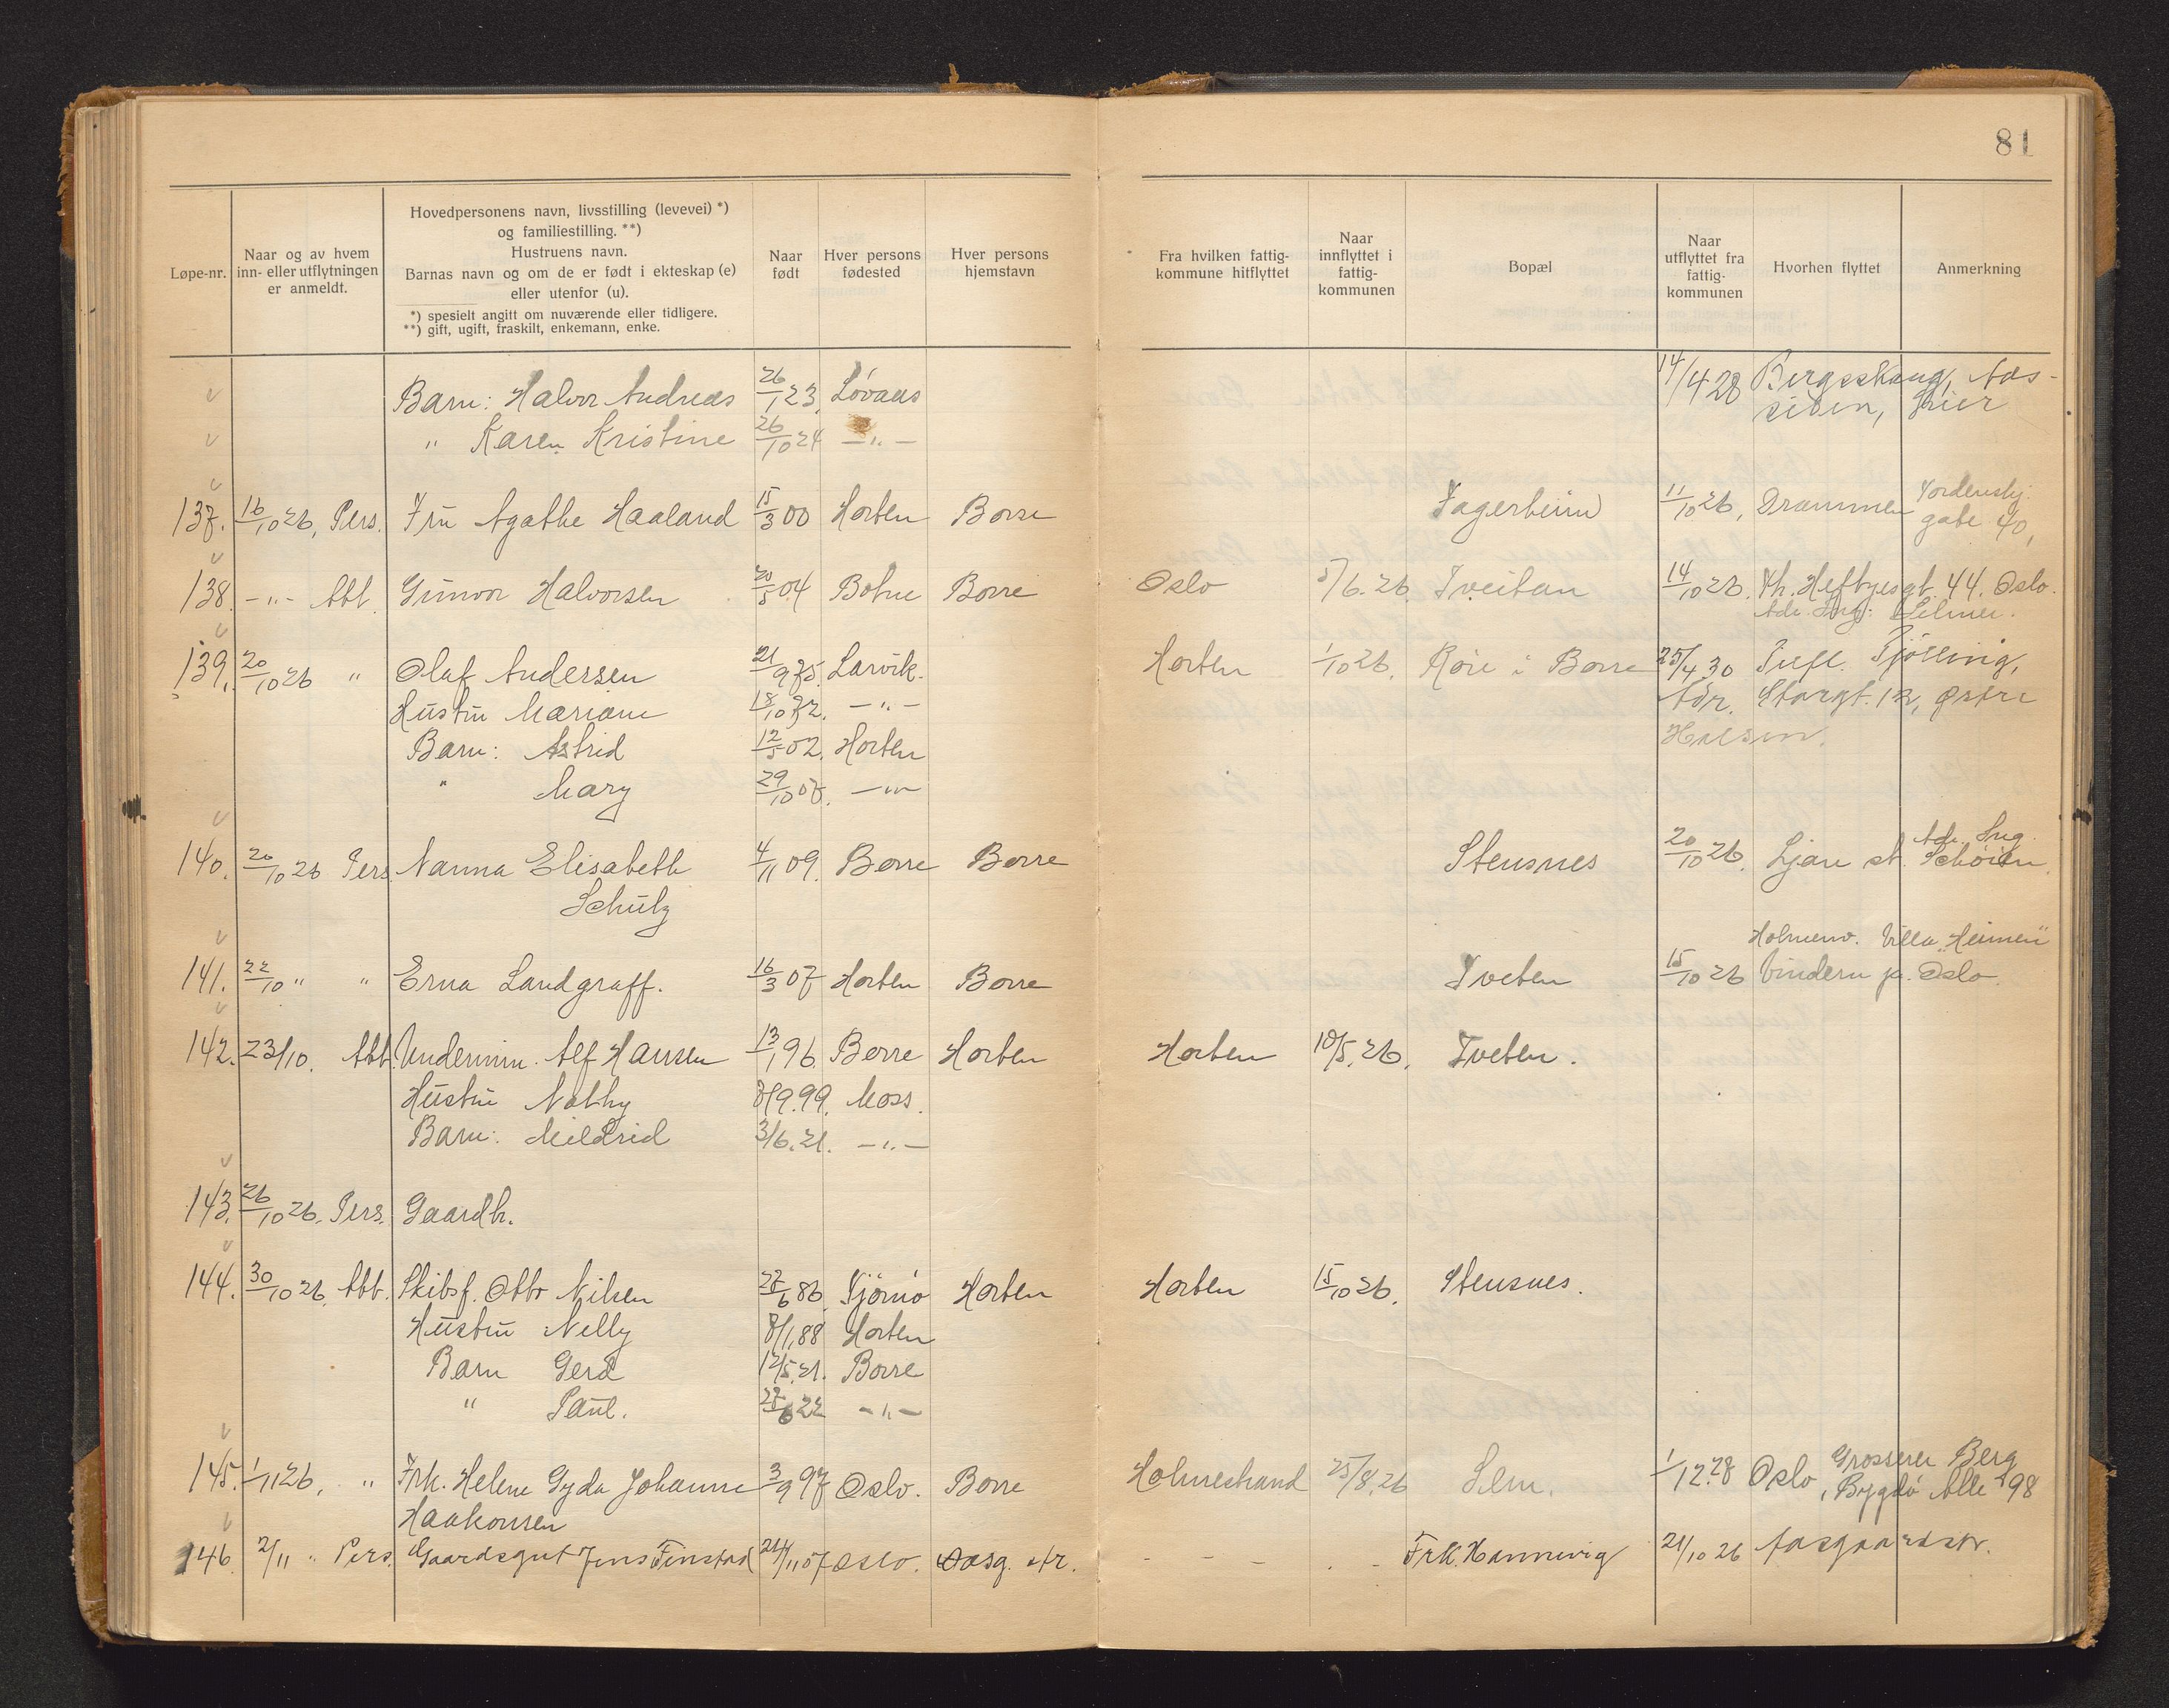 81
Løpe-nr.
Naar og av hvem
inn- eller utflytningen
er anmeldt.
Hovedpersonens navn, livsstilling (levevei) *)
og familiestilling. **)
Hustruens navn.
Barnas navn og om de er født i ekteskap (e)
eller utenfor (u).
*) spesielt angitt om nuværende eller tidligere.
**) gift, ugift, fraskilt, enkemann, enke.
Naar
født
Hver persons
fødested
Hver persons
hjemstavn
Fra hvilken fattig-
kommune hitflyttet
Naar
innflyttet i
fattig-
kommunen
Bopæl
Naar
utflyttet fra
fattig-
kommunen
Hvorhen flyttet
Anmerkning
Barn: Halvor Andreas 26/1 23. Løvaas 14/4 28 Bergskaug, Aas-
siden, Lier
" Karen Kristine 26/10 24 -"-
137. 16/10 26, Pers. Fru Agathe Haaland 15/3 00 Horten Borre Fagerheim 11/10 26, Drammen
gate 40,
138. -"- Att. Gunvor Halvorsen 20/5 04 Botne Borre Oslo 5/6. 26. Tveitan 14/10 26. Th. Heftyesgt. 44. Oslo.
Adr. Ing: Selmer.
139. 20/10 26 " Olaf Andersen 21/9 75. Larvik. Horten 1/10 26. Røre i Borre 25/4 30 Tjølling,
Hustru Mariane 18/10 72. -"- Adr. Storgt. 12, Østre
Halsen.
Barn: Astrid 12/5 02. Horten
" Mary 29/10 07. -"-
140. 20/10 26 Pers. Nanna Elisabeth 4/11 09. Borre Borre Stensnes 20/10 26. Ljan st. Adr. Ing. Schøien.
Schulz
141. 22/10 " " Erna Landgraff. 16/3 07 Horten Borre Tveten 15/10 26 Holmenv. Villa "Heimen"
Vindern pr. Oslo.
142. 23/10. Att. Underminr. Alf Hansen 13/1 96. Borre Horten Horten 10/5. 26. Tveten.
Hustru Nathy 8/9. 99. Moss.
Barn: Mildrid 3/6. 21. -"-
143. 26/10 26. Pers. Gaardbr.
144. 30/10 26. Att. Skibsf. Otto Nilsen 27/6 86. Tjømø Horten Horten 15/10 26. Stensnes.
Hustru Nelly 8/1. 88 Horten
Barn Gerd 12/5. 21. Borre
" Paul. 27/6 22 -"-
145. 1/11 26, " Frk. Helene Gyda Johanne 3/9 97 Oslo. Borre Holmestrand 25/8. 26 Sem. 1/12. 28 Oslo, Grosserer Berg
Bygdø Alle 98
Haakonsen
146. 2/11 " Pers. Gaardsgut Jens Finstad 24/11 07 Oslo. Aasg. str. - - - . - Frk. Hannevig 21/10 26 Aasgaardstr.